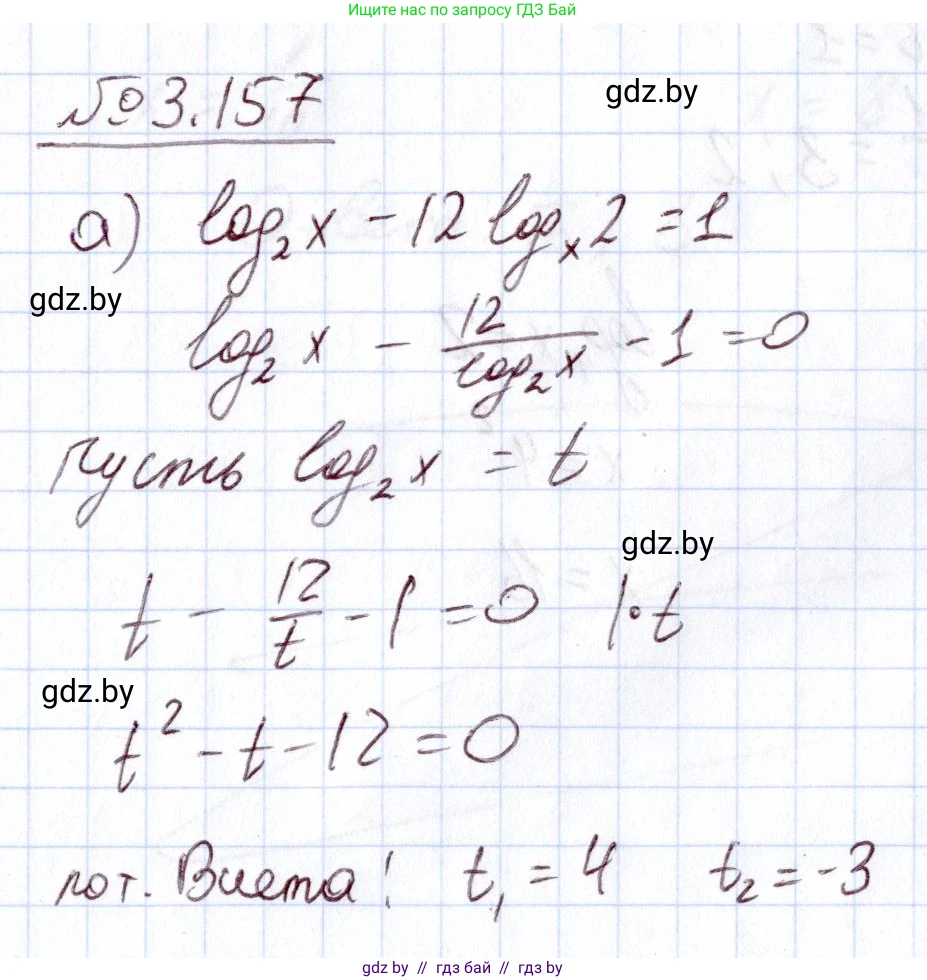 Ищите нас по запросу ГДЗ Бай
№3.157
gdz.by
а) log₂x - 12 logₓ2 = 1
gdz.by
log₂x - 12/log₂x - 1 = 0
Пусть log₂x = t
gdz.by
t - 12/t - 1 = 0 |·t
gdz.by
t² - t - 12 = 0
по т. Виета: t₁ = 4 t₂ = -3
gdz.by // гдз бай // gdz.by